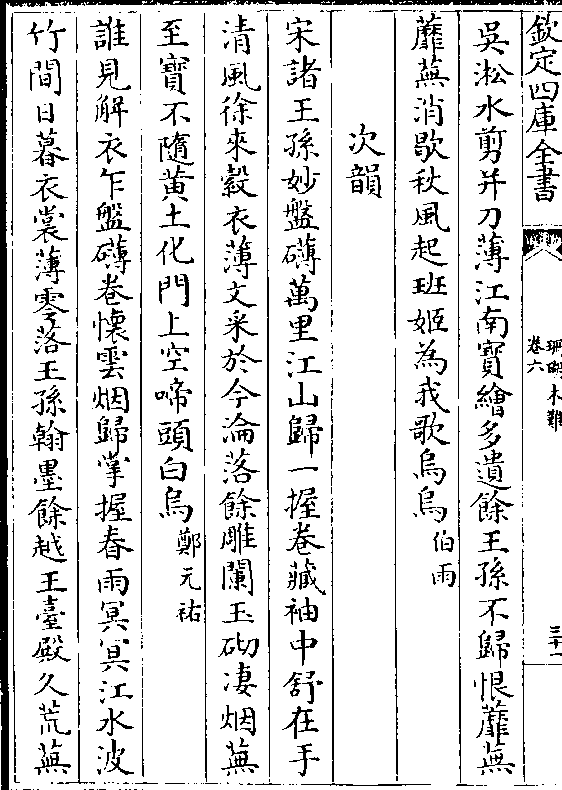 欽定四庫全書
珊瑚木難
卷六
三十一
吳淞水剪并刀薄江南寶繪多遺餘王孫不歸恨蘼蕪
蘼蕪消歇秋風起班姬為我歌烏烏伯雨
次韻
宋諸王孫妙盤礴萬里江山歸一握卷藏袖中舒在手
清風徐來縠衣薄文采於今淪落餘雕闌玉砌淒烟蕪
至寶不隨黃土化門上空啼頭白烏鄭元祐
誰見解衣乍盤礴卷懷雲烟歸掌握春雨冥冥江水波
竹間日暮衣裳薄零落王孫翰墨餘越王臺殿久荒蕪